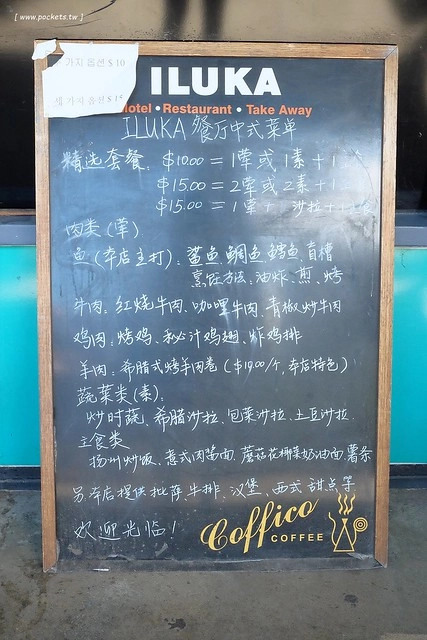 [ www.pockets.tw ]
가지 옵션 $ 10
세 가지 옵션 $ 15
ILUKA
Hotel • Restaurant • Take Away
ILUKA 餐厅中式菜单
精选套餐: $10.00 = 1荤或1素+1
$15.00 = 2荤或2素+1
$15.00 = 1荤+ 沙拉+1
肉类(荤)
鱼(本店主打): 鲨鱼、鲷鱼、鳕鱼、盲槽
烹饪方法: 油炸、煎、烤
牛肉: 红烧牛肉、咖哩牛肉、青椒炒牛肉
鸡肉: 烤鸡、秘汁鸡翅、炸鸡排
羊肉: 希腊式烤羊肉卷 ($10.00/个, 本店特色)
蔬菜类(素):
炒时蔬、希腊沙拉、包菜沙拉、土豆沙拉
主食类
扬州炒饭、意式肉酱面、蘑菇花椰菜奶油面、薯条
另: 本店提供批萨、牛排、汉堡、西式甜点等
欢迎光临!
Coffico
COFFEE